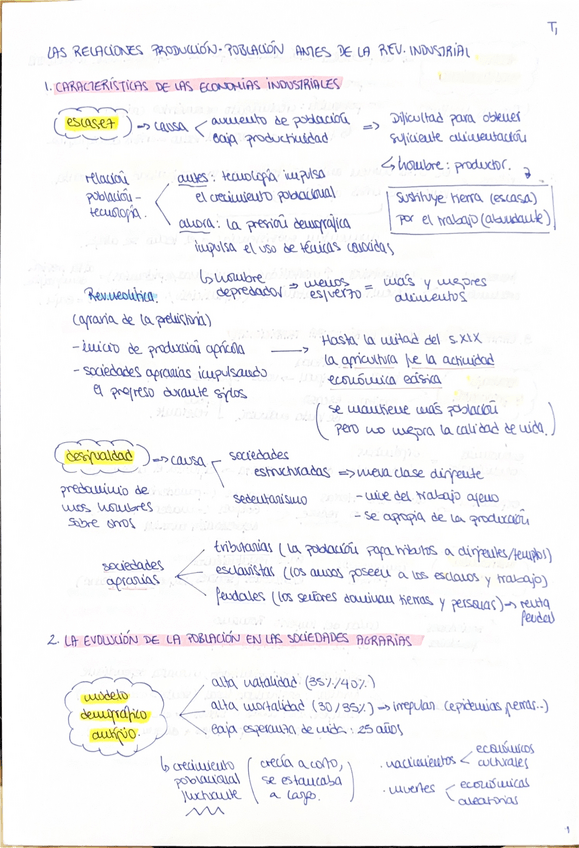 T1
LAS RELACIONES PRODUCCIÓN-POBLACIÓN ANTES DE LA REV. INDUSTRIAL
1. CARACTERÍSTICAS DE LAS ECONOMÍAS INDUSTRIALES
escasez → causa < aumento de población
baja productividad
⇒ Dificultad para obtener
suficiente alimentación
↳ hombre: productor.
Sustituye tierra (escasa)
por el trabajo (abundante)
relación
población-
tecnología.
antes: tecnología impulsa
el crecimiento poblacional
ahora: la presión demográfica
impulsa el uso de técnicas conocidas
↳ hombre
depredador ⇒ menos
esfuerzo = más y mejores
alimentos
Rev. neolítica.
(agraria de la prehistoria)
- inicio de producción agrícola
- sociedades agrarias impulsando
el progreso durante siglos
→ Hasta la mitad del s. XIX
la agricultura fue la actividad
económica básica
(se mantiene más población
pero no mejora la calidad de vida.)
desigualdad ⇒ causa
predominio de
unos hombres
sobre otros
sociedades
estructuradas ⇒ nueva clase dirigente
sedentarismo
- vive del trabajo ajeno
- se apropia de la producción
sociedades
agrarias
tributarias (la población paga tributos a dirigentes/templos)
esclavistas (los amos poseen a los esclavos y trabajo)
feudales (los señores dominan tierras y personas) → renta
feudal
2. LA EVOLUCIÓN DE LA POBLACIÓN EN LAS SOCIEDADES AGRARIAS
modelo
demográfico
antiguo.
alta natalidad (35%/40%)
alta mortalidad (30/35%) → irregular (epidemias, guerras..)
baja esperanza de vida: 25 años
↳ crecimiento
poblacional
fluctuante
(crecía a corto,
se estancaba
a largo.)
· nacimientos < económicos
culturales
· muertes < económicas
aleatorias
1